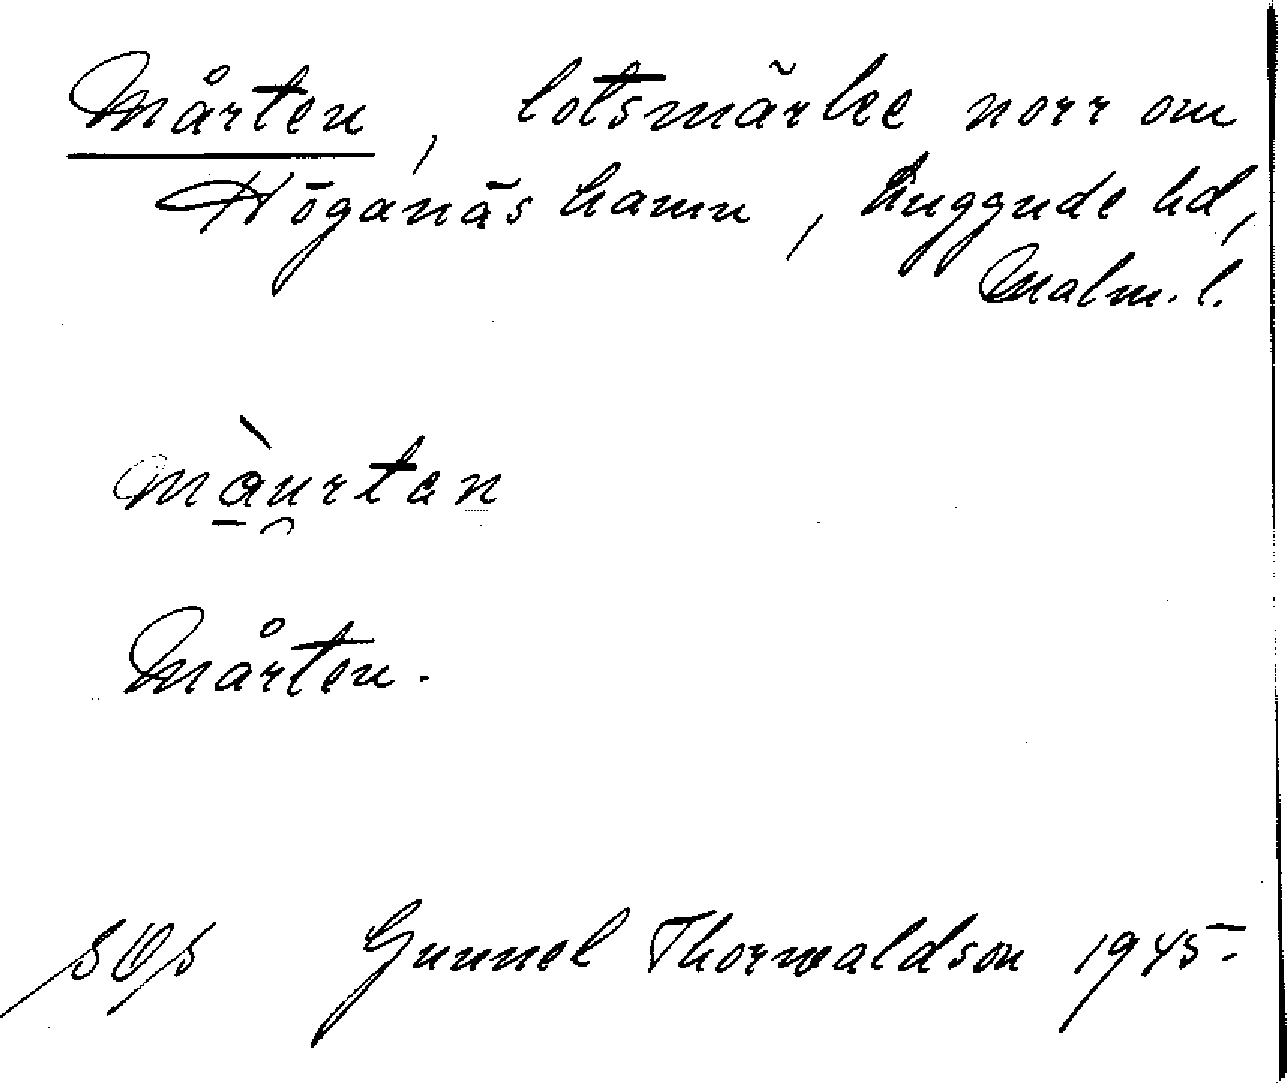 Mårten, lotsmärke norr om
Höganäs hamn, Luggude hd,
Malm. l.
màurtan
Mårten.
SOS Gunnel Thorwaldson 1945.